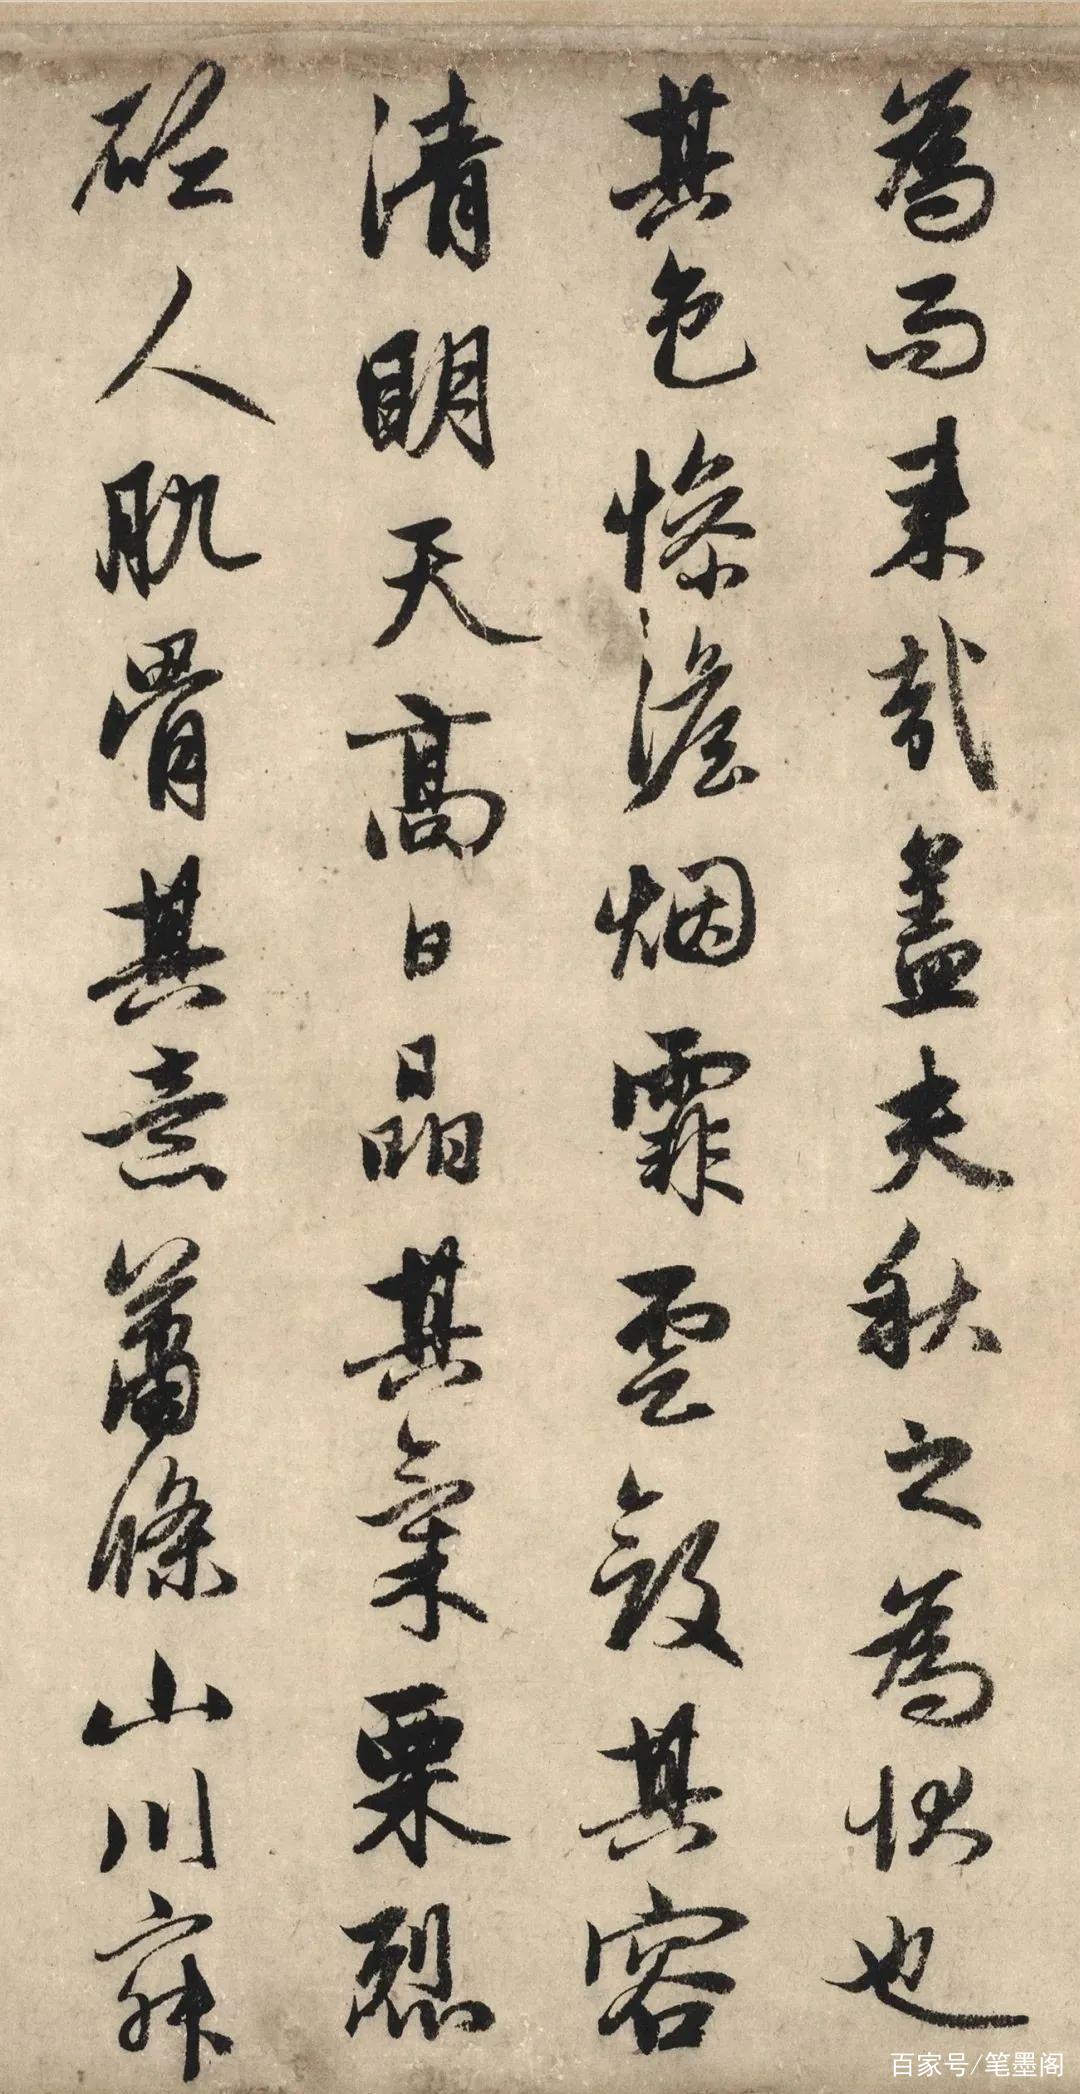 為而来哉蓋夫秋之為狀也
其色慘澹烟霏雲斂其容
清明天高日晶其氣栗烈
砭人肌骨其意蕭條山川寂
百家号/笔墨阁